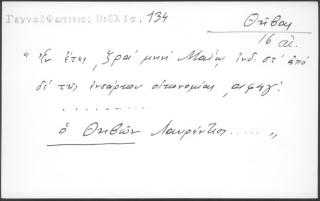 Γενναδ[ι]ωτικος Βιβλ 15, 134
Θηβαι
16 αἰ.
"ἐν ἔτει, ζραʹ μηνὶ Μαΐῳ ἰνδ. στʹ ἀπὸ
δὲ τῆς ἐνσάρκου οἰκονομίας, αφϟγʹ:
. . . . . . . . . . .
ὁ Θηβῶν Λαυρέντιος ..... "